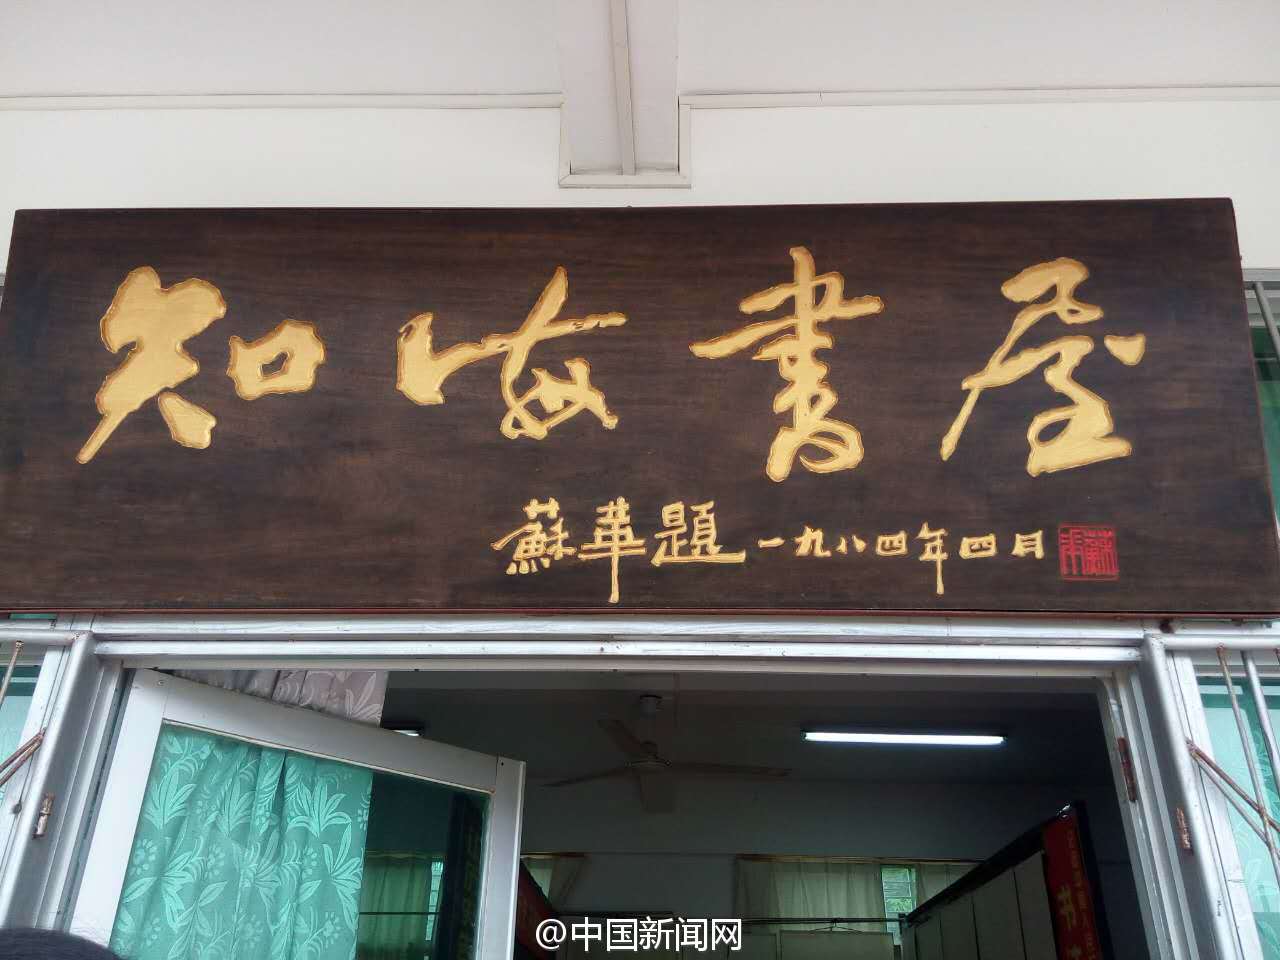 知海書屋
蘇華題一九八四年四月
书
@中国新闻网